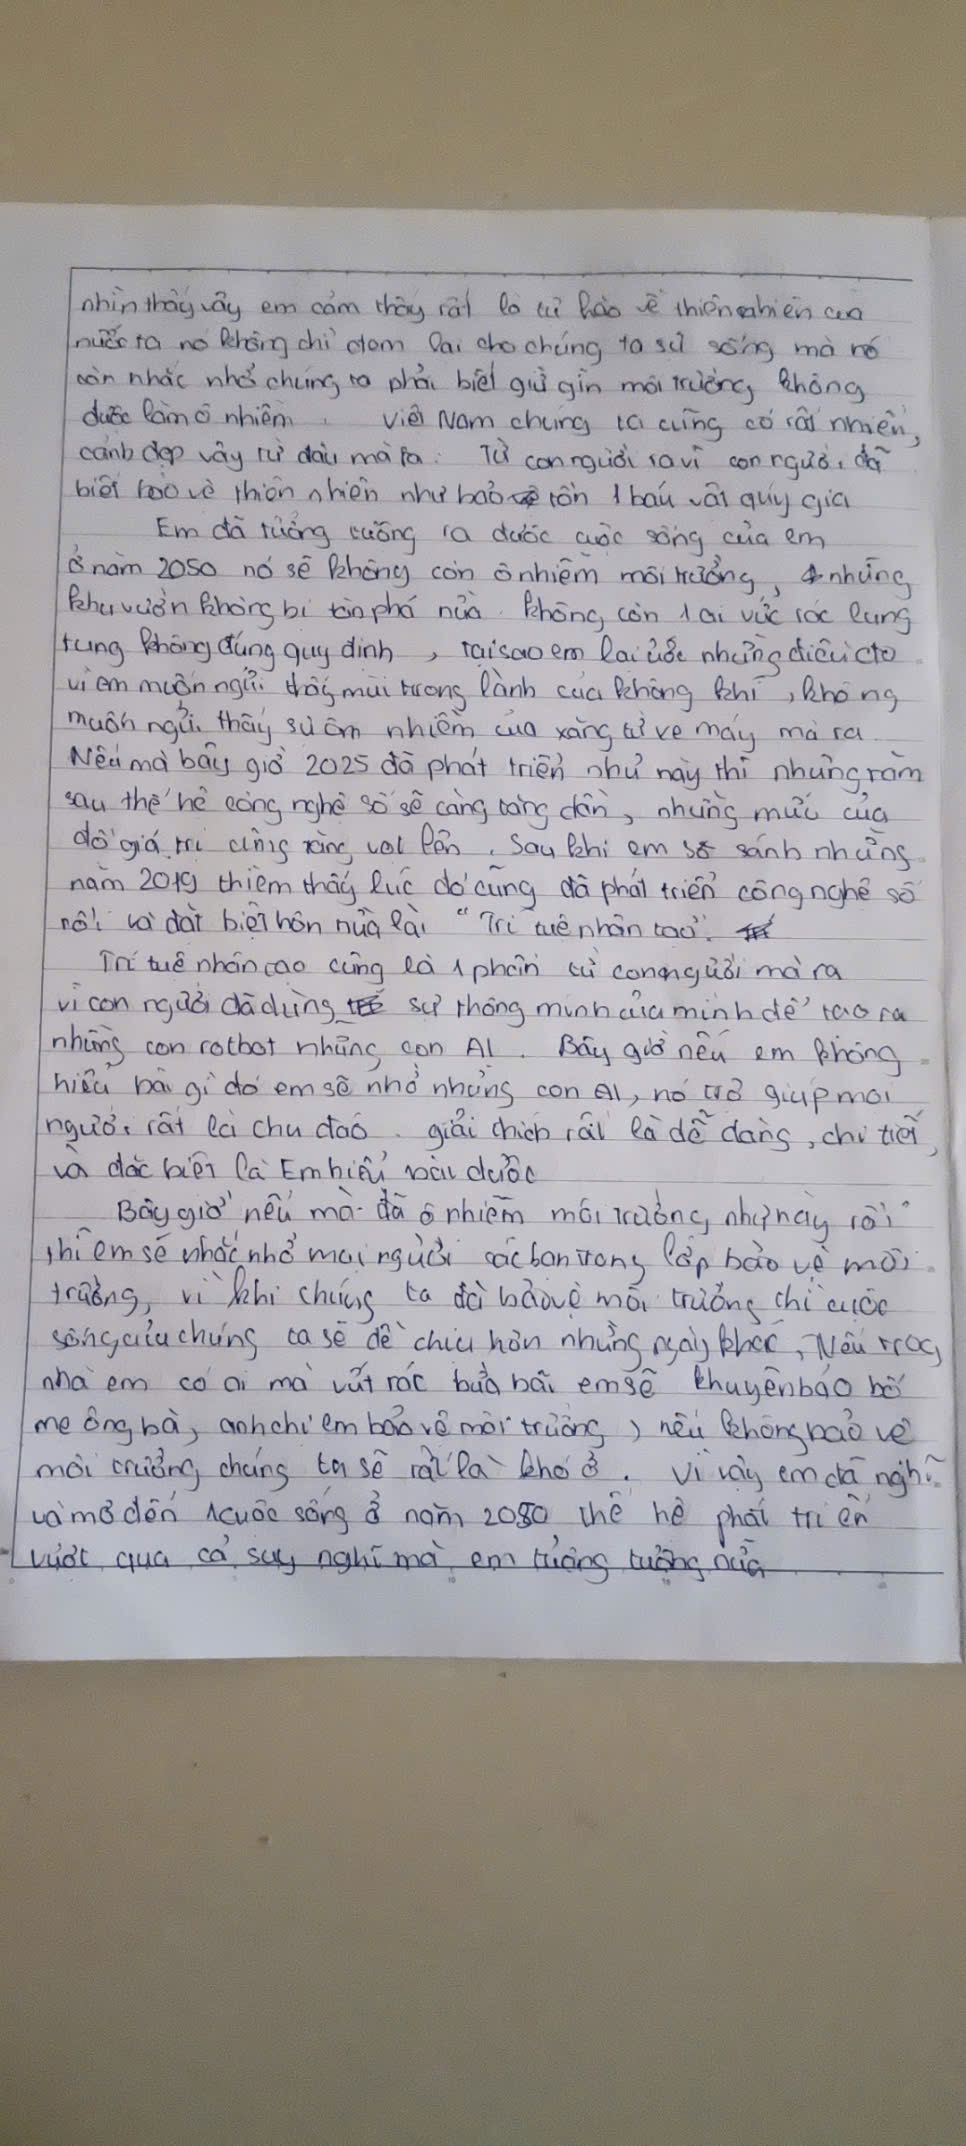 nhìn thấy vậy em cảm thấy rất là tự hào về thiên nhiên của
nước ta nó không chỉ đem lại cho chúng ta sự sống mà nó
còn nhắc nhở chúng ta phải biết giữ gìn môi trường không
được làm ô nhiễm. Việt Nam chúng ta cũng có rất nhiên,
cảnh đẹp vậy từ đâu mà ra. Từ con người ra vì con người đã
biết bảo vệ thiên nhiên như bảo tồn 1 báu vật quý giá
Em đã tưởng tượng ra được cuộc sống của em
ở năm 2050 nó sẽ không còn ô nhiễm môi trường, những
khu vườn không bị tàn phá nữa. Không còn 1 ai vức rác lung
tung không đúng quy định, tại sao em lại ước những điều đó
vì em muốn ngửi thấy mùi trong lành của không khí, không
muốn ngửi thấy sự ôn nhiễm của xăng từ xe máy mà ra
Nếu mà bây giờ 2025 đã phát triển như này thì những năm
sau thế hệ công nghệ số sẽ càng tăng dần, những mức của
độ giá trị cũng tăng vọt lên. Sau khi em so sánh những
năm 2019 thì em thấy lúc đó cũng đã phát triển công nghệ số
rồi và đặt biệt hơn nữa là "Trí tuệ nhân tạo".
Trí tuệ nhân tạo cũng là 1 phần từ con người mà ra
vì con người đã dùng sự thông minh của mình để tạo ra
những con rotbot những con AI. Bây giờ nếu em không
hiểu bài gì đó em sẽ nhờ những con AI, nó trợ giúp mọi
người rất là chu đáo. giải thích rất là dễ dàng, chi tiết,
và đặc biệt là Em hiểu bài được
Bây giờ nếu mà đã ô nhiễm môi trường như này rồi
thì em sẽ nhắc nhở mọi người các bạn trong lớp bảo vệ môi
trường, vì khi chúng ta đã bảo vệ môi trường thì cuộc
sống của chúng ta sẽ dễ chịu hơn những ngày khác, Nếu trog
nhà em có ai mà vứt rác bừa bãi em sẽ khuyên bảo bố
mẹ ông bà, anh chị em bảo vệ môi trường, nếu không bảo vệ
môi trường chúng ta sẽ rất là khó ở. Vì vậy em đã nghĩ
và mơ đến 1 cuộc sống ở năm 2050 thế hệ phát triển
vượt qua cả suy nghĩ mà em tưởng tượng nữa